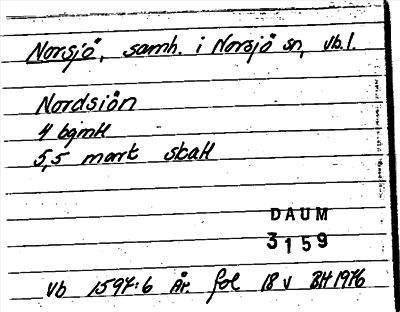 Norsjö, samh. i Norsjö sn, Vb.l.
Nordsiön
4 bgmtl
5,5 mark skatt
DAUM
3159
Vb 1597:6 År. fol 18 v BH 1976